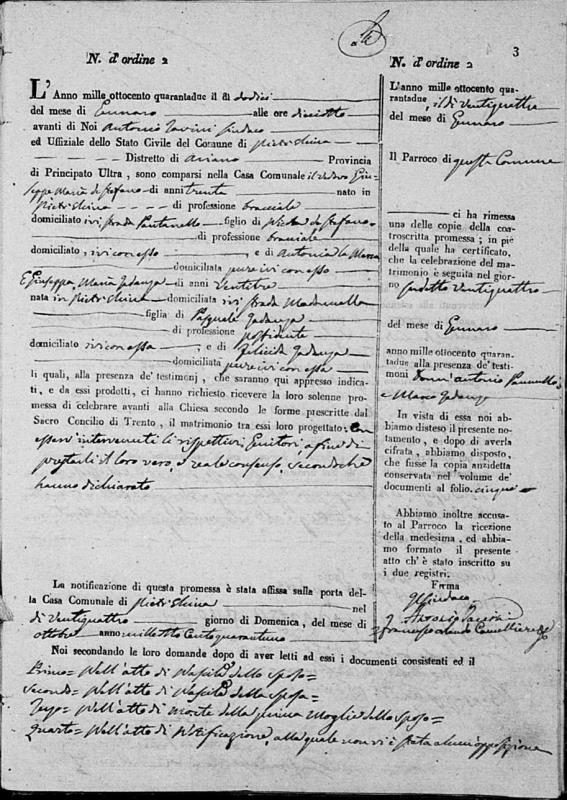 3
N. d'ordine 2
L'Anno mille ottocento quarantadue il dì dodici
del mese di Gennaro alle ore diciotto
avanti di Noi Antonio Iavini Sindaco
ed Uffiziale dello Stato Civile del Comune di Pietrelcina
Distretto di Ariano Provincia
di Principato Ultra, sono comparsi nella Casa Comunale il vedovo Giu-
seppe Maria de Stefano di anni trenta nato in
Pietrelcina di professione bracciale
domiciliato ivi, strada Pantaniello figlio di de Stefano
di professione bracciale
domiciliato, ivi con esso e di Antonia la Marca
domiciliata pure ivi con esso
E Giuseppa Maria Cadanza di anni ventitre
nata in Pietrelcina domiciliata ivi strada Madonnella
figlia di Pasquale Cadanza
di professione possidente
domiciliato ivi con essa ; e di Felicita Cadanza
domiciliata pure ivi con essa
li quali, alla presenza de' testimonj, che saranno qui appresso indica-
ti, e da essi prodotti, ci hanno richiesto ricevere la loro solenne pro-
messa di celebrare avanti alla Chiesa secondo le forme prescritte dal
Sacro Concilio di Trento, il matrimonio tra essi loro progettato: con
esservi intervenuti li rispettivi Genitori, a fine di
prestarli il loro vero, e reale consenso, secondo che
hanno dichiarato
La notificazione di questa promessa è stata affissa sulla porta del-
la Casa Comunale di Pietrelcina nel
dì ventiquattro giorno di Domenica, del mese di
ottobre anno mille otto cento quarantuno
Noi secondando le loro domande dopo di aver letti ad essi i documenti consistenti ed il
Primo = Nell'atto di Nascita dello sposo =
Secondo = Nell'atto di Nascita della sposa =
Terzo = Nell'atto di morte della prima Moglie dello sposo =
Quarto = Nell'atto di Notificazione, alla quale non vi è stata alcun'opposizione
N. d'ordine 2
L'anno mille ottocento qua-
rantadue, il dì ventiquattro
del mese di Gennaro
Il Parroco di questa Comune
ci ha rimessa
una delle copie della con-
troscritta promessa; in piè
della quale ha certificato,
che la celebrazione del ma-
trimonio è seguita nel gior-
no suddetto ventiquattro
del mese di Gennaro
anno mille ottocento quaran-
tadue alla presenza de' testi-
moni Donn'Antonio
e Marco Cadanza
In vista di essa noi ab-
biamo disteso il presente no-
tamento, e dopo di averla
cifrata, abbiamo disposto,
che fusse la copia anzidetta
conservata nel volume de'
documenti al folio. cinque
Abbiamo inoltre accusa-
to al Parroco la ricezione
della medesima, ed abbia-
mo formato il presente
atto ch'è stato inscritto su
i due registri.
Firma
Il Sindaco
Antonio Iavini
Francesco Orlando Cancelliere